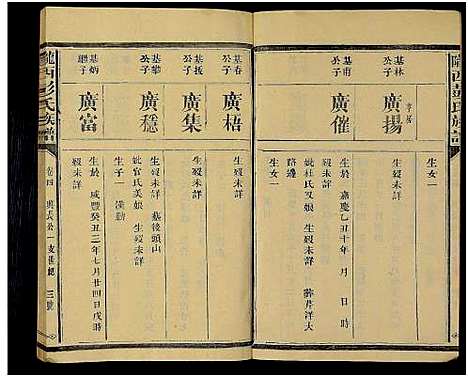 隴西彭氏族譜
基林
公子
廣揚
生女一
基甫
公子
廣催
生於 嘉慶乙丑十年 月 日 時
妣杜氏艾娘 生歿未詳 葬芹洋大
路邊
生女一
基春
公子
廣梧
生歿未詳
基拔
公子
廣集
生歿未詳 墓後頭山
妣官氏美娘 生歿未詳
生子一
基攀
公子
廣穩
生歿未詳
基炳
繼子
廣富
生於 咸豐癸丑三年七月廿四日戌時
隴西彭氏族譜
卷四
三號